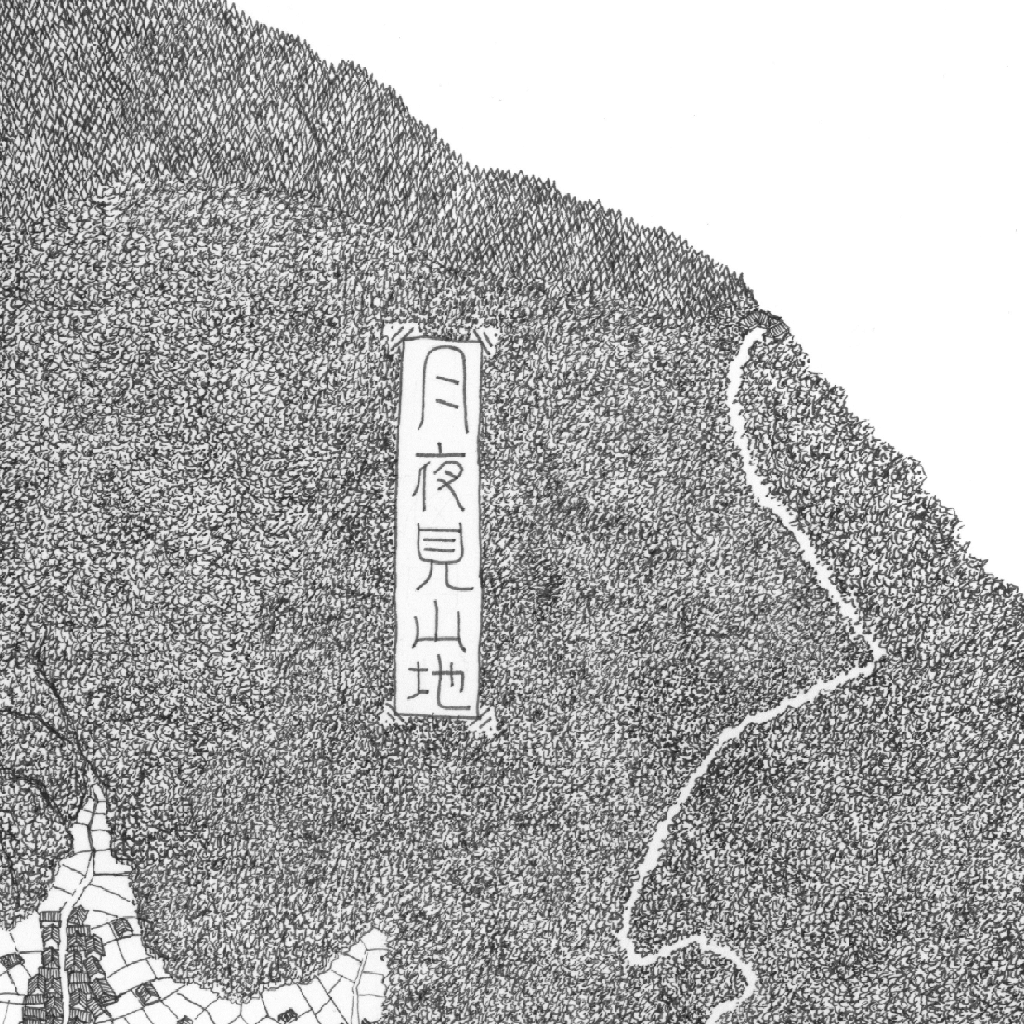 月夜見山地